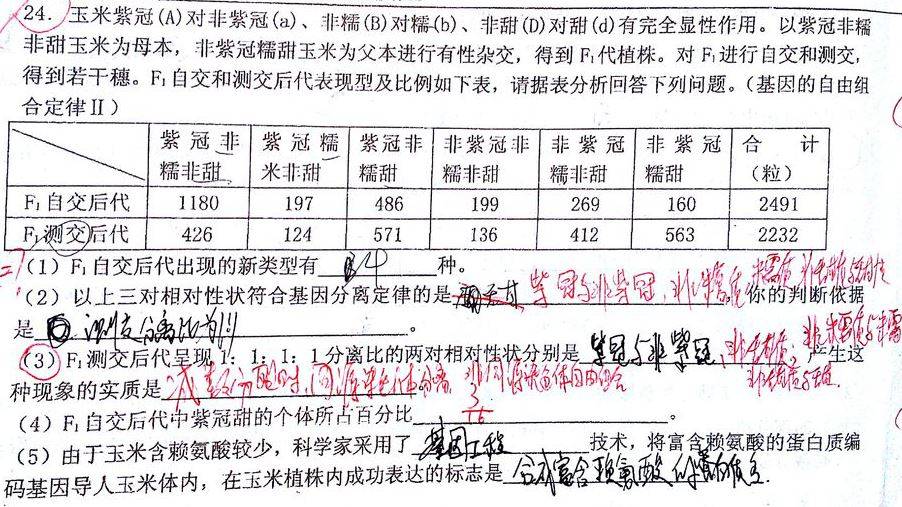 24. 玉米紫冠(A)对非紫冠(a)、非糯(B)对糯(b)、非甜(D)对甜(d)有完全显性作用。以紫冠非糯
非甜玉米为母本，非紫冠糯甜玉米为父本进行有性杂交，得到F₁代植株。对F₁进行自交和测交，
得到若干穗。F₁自交和测交后代表现型及比例如下表，请据表分析回答下列问题。（基因的自由组
合定律Ⅱ）
紫冠非糯非甜 紫冠糯米非甜 紫冠非糯甜 非紫冠非糯非甜 非紫冠糯非甜 非紫冠糯甜 合计（粒）
F₁自交后代 1180 197 486 199 269 160 2491
F₁测交后代 426 124 571 136 412 563 2232
（1）F₁自交后代出现的新类型有 4 种。
（2）以上三对相对性状符合基因分离定律的是 紫冠与非紫冠，非糯质 糯质 你的判断依据
是 测交分离比为1:1 。
（3）F₁测交后代呈现1：1：1：1分离比的两对相对性状分别是 紫冠与非紫冠， 产生这
种现象的实质是 减数分裂时，同源染色体分离，非同源染色体自由组合
（4）F₁自交后代中紫冠甜的个体所占百分比 3/16 。
（5）由于玉米含赖氨酸较少，科学家采用了 基因工程 技术，将富含赖氨酸的蛋白质编
码基因导人玉米体内，在玉米植株内成功表达的标志是 合成富含赖氨酸的蛋白质.